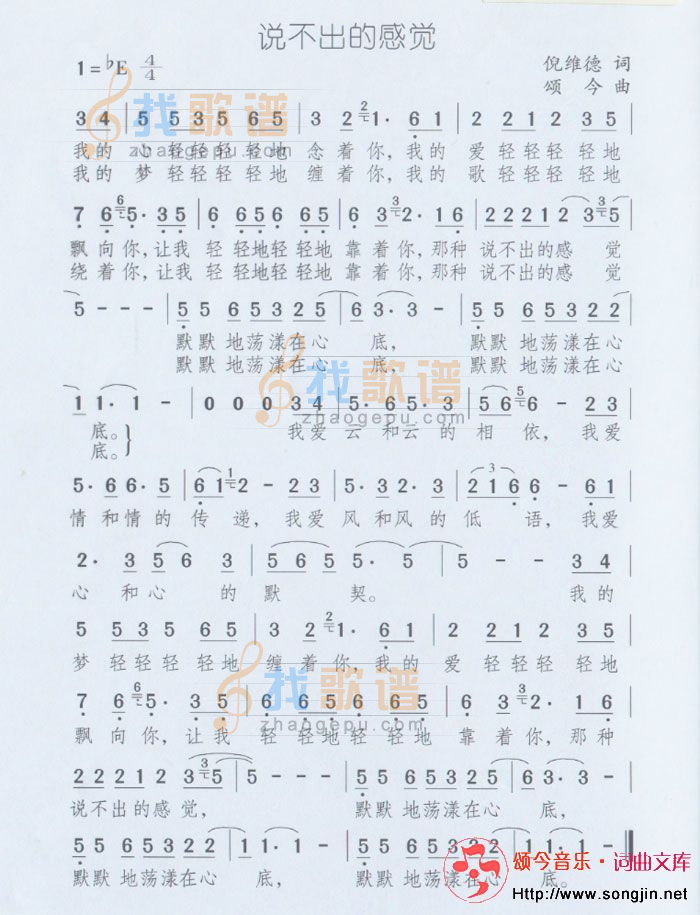 说不出的感觉
1=♭E 4/4
倪维德 词
颂今 曲
3 4 | 5 5 3 5 6 5 | 3 2 1· 6 1 | 2 2 1 2 3 5 |
我的 心轻轻轻轻地 念着你,我的 爱轻轻轻轻地
我的 梦轻轻轻轻地 缠着你,我的 歌轻轻轻轻地
7 6 5· 3 5 | 6 6 5 6 6 5 | 6 3 2· 1 6 | 2 2 2 2 1 2 3 5 |
飘向你,让我 轻轻地轻轻地 靠着你,那种 说不出的感 觉
绕着你,让我 轻轻地轻轻地 靠着你,那种 说不出的感 觉
5 - - - | 5 5 6 5 3 2 5 | 6 3· 3 - | 5 5 6 5 3 2 2 |
默默 地荡漾在心 底, 默默 地荡漾在心
默默 地荡漾在心 底, 默默 地荡漾在心
1 1· 1 - | 0 0 0 3 4 | 5· 6 5· 3 | 5 6 6 - 2 3 |
底。 我爱 云和云的 相 依,我爱
底。
5· 6 6· 5 | 6 1 2 - 2 3 | 5· 3 2· 3 | 2 1 6 6 - 6 1 |
情和情的 传 递, 我爱 风和风的 低 语,我爱
2· 3 5 6 3 | 5 6 5 5· 5 | 5 - - 3 4 |
心 和心 的 默 契。 我的
5 5 3 5 6 5 | 3 2 1· 6 1 | 2 2 1 2 3 5 |
梦 轻轻轻 轻地 缠着你,我的 爱 轻轻轻 轻地
7 6 5· 3 5 | 6 6 5 6 6 5 | 6 3 2· 1 6 |
飘向你,让我 轻 轻地轻 轻地 靠着你,那种
2 2 2 2 1 2 3 5 | 5 - - - | 5 5 6 5 3 2 5 | 6 3· 3 - |
说不出的感觉, 默默 地荡漾在心 底,
5 5 6 5 3 2 2 | 1 1· 1 - | 5 5 6 5 3 2 2 | 1 1· 1 -
默默 地荡漾在心 底, 默默 地荡漾在心 底。
找歌谱
zhaogepu.com
找歌谱
zhaogepu.com
找歌谱
zhaogepu.com
颂今音乐·词曲文库
Http://www.songjin.net